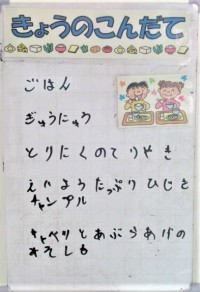 きょうのこんだて
ごはん
ぎゅうにゅう
とりにくのてりやき
えいようたっぷりひじき
チャンプル
キャベツとあぶらあげの
みそしる